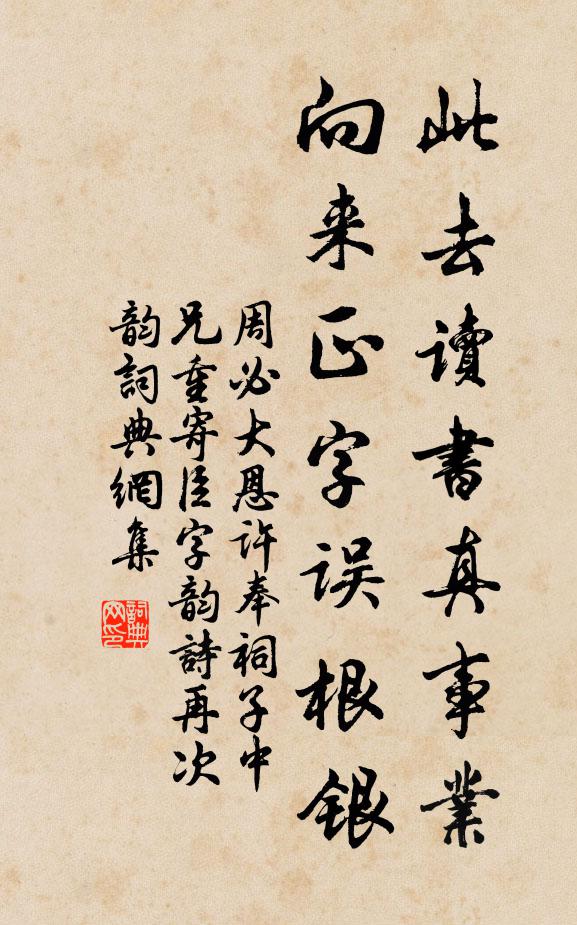 此去讀書真事業
向来正字误根銀
周必大恩许奉祠子中
兄重寄臣字韵詩再次
韵詞典網集
詞典
网印